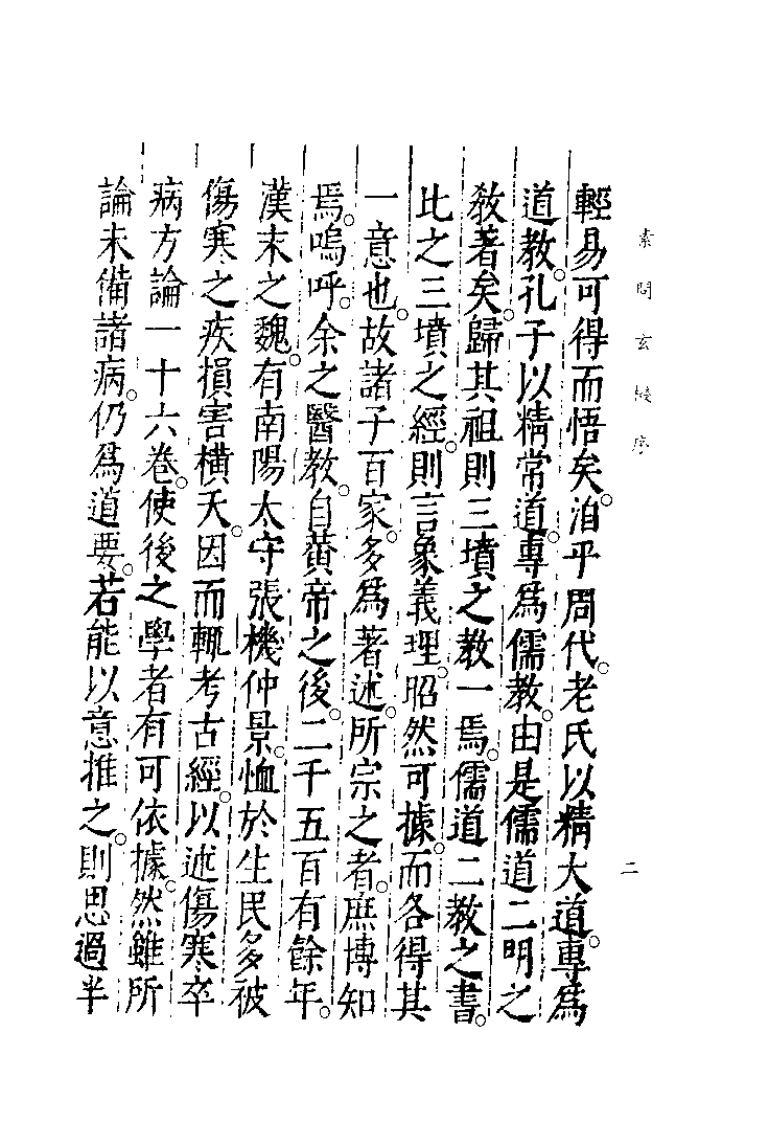 素問玄機序
二
輕易可得而悟矣。洎乎周代。老氏以精大道。專爲
道教。孔子以精常道。專爲儒教。由是儒道二明之
教著矣。歸其祖則三墳之教一焉。儒道二教之書。
比之三墳之經。則言象義理。昭然可據。而各得其
一意也。故諸子百家。多爲著述。所宗之者。庶博知
焉。嗚呼。余之醫教。自黄帝之後。二千五百有餘年。
漢末之魏。有南陽太守張機仲景。恤於生民多被
傷寒之疾損害横夭。因而輒考古經。以述傷寒卒
病方論一十六卷。使後之學者有可依據。然雖所
論未備諸病。仍爲道要。若能以意推之。則思過半